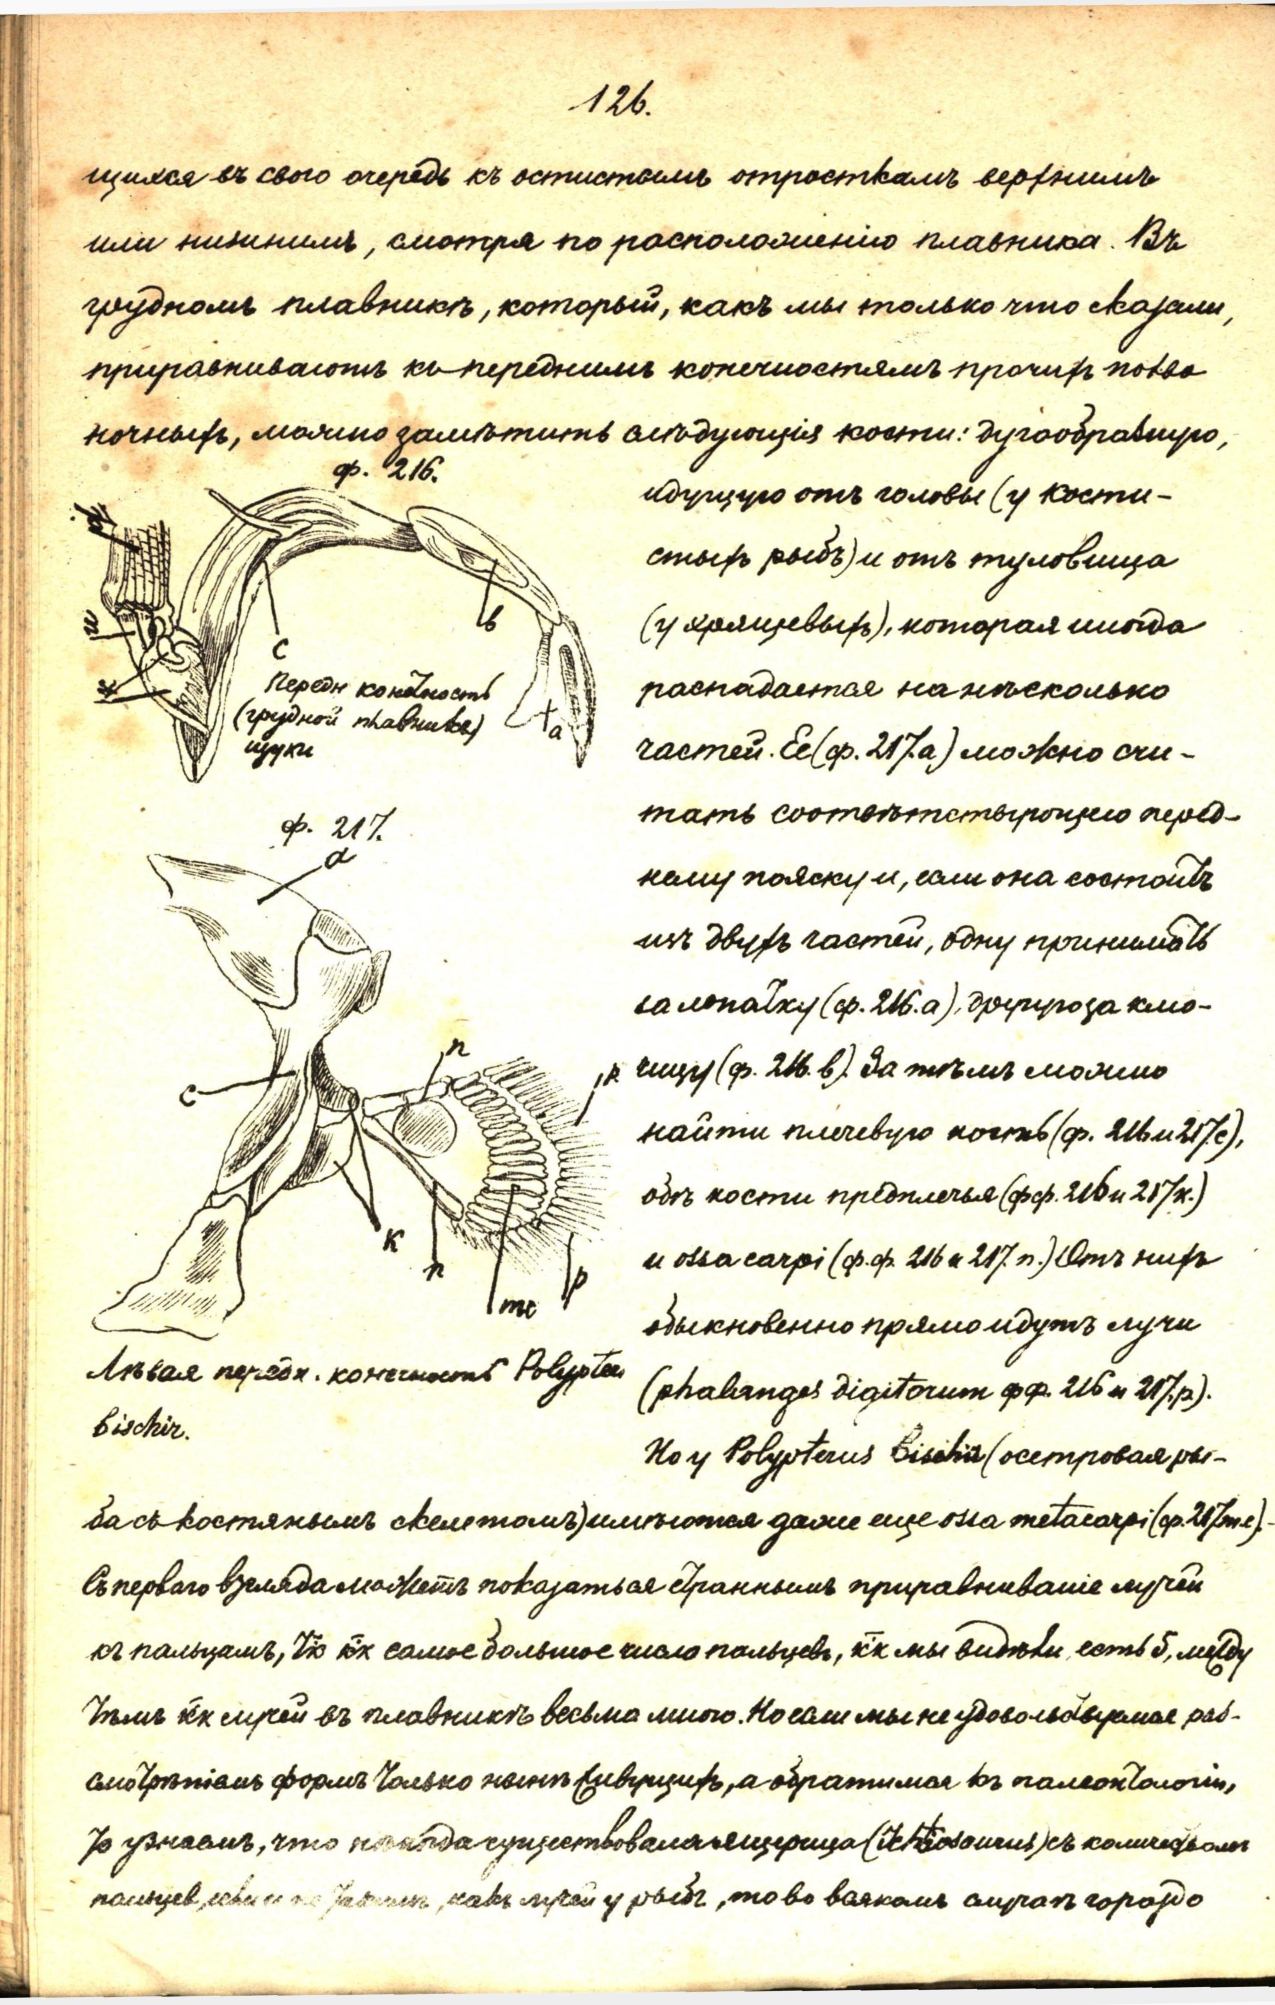 126.
щихся въ свою очередь къ остистымъ отросткамъ верхнимъ
или нижнимъ, смотря по расположенію плавника. Въ
грудномъ плавникѣ, который, какъ мы только что сказали,
приравниваютъ къ переднимъ конечностямъ прочихъ позво
ночныхъ, можно замѣтить слѣдующія кости: дугообразную,
ф. 216.
с
в
а
к
Передн конечность
(грудной плавникъ)
щуки
идущую отъ головы (у кости-
стыхъ рыбъ) и отъ туловища
(у хрящевыхъ), которая иногда
распадается на нѣсколько
частей. Ее (ф. 217.а) можно счи-
тать соотвѣтствующею перед-
нему пояску и, если она состоитъ
изъ двухъ частей, одну принимать
за лопатку (ф. 216.а), другую за клю-
чицу (ф. 216.в). Затѣмъ можно
найти плечевую кость (ф. 216 и 217.с),
обѣ кости предплечья (фф. 216 и 217.к.)
и ossa carpi (ф.ф. 216 и 217. п.) Отъ нихъ
обыкновенно прямо идутъ лучи
(phalanges digitorum фф. 216 и 217.р).
Но у Polypterus bischir (осетровая ры-
ф. 217.
а
с
п
р
к
п
mc
р
Лѣвая передн. конечность Polypter
bischir.
ба съ костянымъ скелетомъ) имѣются даже еще ossa metacarpi (ф. 217.m.c).
Съ перваго взгляда можетъ показаться страннымъ приравниваніе лучей
къ пальцамъ, тк кк самое большое число пальцевъ, кк мы видѣли, есть 5, между
тѣмъ кк лучей въ плавникѣ весьма много. Но если мы не удовольствуемся раз-
смотрѣніемъ формъ только нынѣ живущихъ, а обратимся къ палеонтологіи,
то узнаемъ, что когда существовала ящерица (Ichtiosaurus) съ количествомъ
пальцев, если и не такимъ, какъ лучей у рыбъ, то во всякомъ случаѣ гораздо